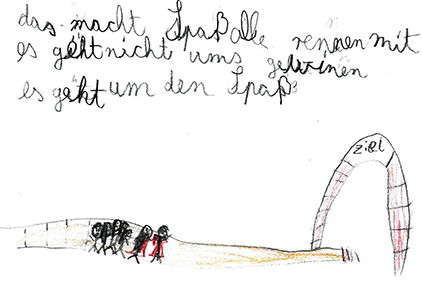 das macht Spaß alle rennen mit
es geht nicht ums gewinnen
es geht um den Spaß
Ziel